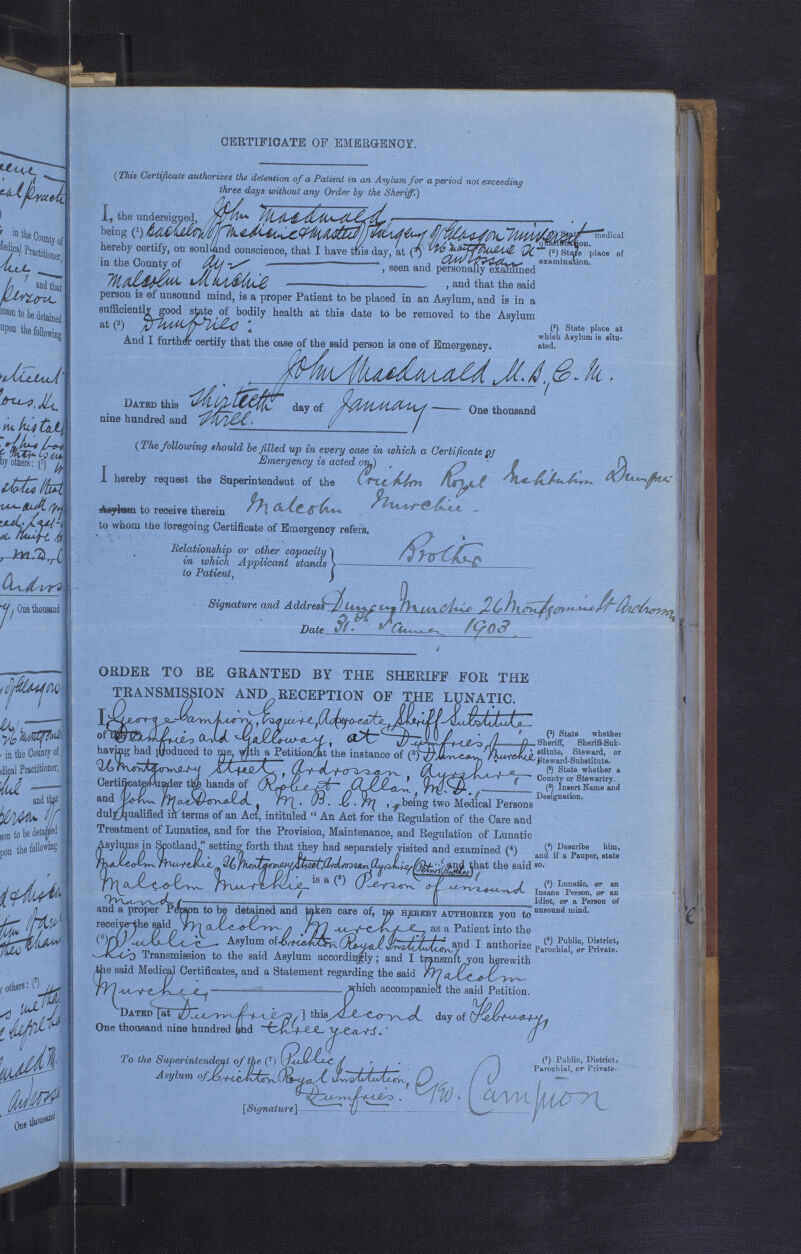 CERTIFICATE OF EMERGENCY.
(This Certificate authorizes the detention of a Patient in an Asylum for a period not exceeding
three days without any Order by the Sheriff.)
I, the undersigned, John Macdonald
being (¹) Bachelor of Medicine & Master of Surgery of Glasgow University
(¹) State medical
qualification.
hereby certify, on soul and conscience, that I have this day, at (²) 26 Montgomerie St
Ardrossan
(²) State place of
examination.
in the County of Ayr, seen and personally examined
Malcolm Murchie, and that the said
person is of unsound mind, is a proper Patient to be placed in an Asylum, and is in a
sufficiently good state of bodily health at this date to be removed to the Asylum
at (³) Dumfries.
(³) State place at
which Asylum is situ-
ated.
And I further certify that the case of the said person is one of Emergency.
John Macdonald M.B., C.M.
DATED this day of January One thousand
nine hundred and three.
(The following should be filled up in every case in which a Certificate of
Emergency is acted on)
I hereby request the Superintendent of the Crichton Royal Institution Dumfries
Asylum to receive therein Malcolm Murchie
to whom the foregoing Certificate of Emergency refers.
Relationship or other capacity
in which Applicant stands
to Patient,
Brother
Signature and Address Duncan Murchie 26 Montgomerie St Ardrossan
Date 31st January 1903
ORDER TO BE GRANTED BY THE SHERIFF FOR THE
TRANSMISSION AND RECEPTION OF THE LUNATIC.
I, George Campion, Esquire, Advocate, Sheriff Substitute
of Dumfries and Galloway, at Dumfries,
(¹) State whether
Sheriff, Sheriff-Sub-
stitute, Steward, or
Steward-Substitute.
having had produced to me, with a Petition at the instance of (³) Duncan Murchie
26 Montgomery Street, Ardrossan, Ayrshire
(²) State whether a
County or Stewartry.
(³) Insert Name and
Designation.
Certificates under the hands of Robert Allan, M.D.,
and John MacDonald, M.B. C.M., being two Medical Persons
duly qualified in terms of an Act, intituled "An Act for the Regulation of the Care and
Treatment of Lunatics, and for the Provision, Maintenance, and Regulation of Lunatic
Asylums in Scotland," setting forth that they had separately visited and examined (⁴)
(⁴) Describe him,
and if a Pauper, state
so.
Malcolm Murchie, 26 Montgomery Street, Ardrossan Ayrshire (Petnrs Brother), and that the said
Malcolm Murchie, is a (⁵) Person of unsound
mind,
(⁵) Lunatic, or an
Insane Person, or an
Idiot, or a Person of
unsound mind.
and a proper Person to be detained and taken care of, DO HEREBY AUTHORIZE you to
receive the said Malcolm Murchie as a Patient into the
(⁶) Public Asylum of Crichton Royal Institution and I authorize
(⁶) Public, District,
Parochial, or Private.
his Transmission to the said Asylum accordingly; and I transmit you herewith
the said Medical Certificates, and a Statement regarding the said Malcolm
Murchie, which accompanied the said Petition.
DATED [at Dumfries,] this Second day of February,
One thousand nine hundred and three years.
To the Superintendent of the (⁷) Public
Asylum of Crichton Royal Institution,
Dumfries.
(⁷) Public, District,
Parochial, or Private.
[Signature] Geo. Campion